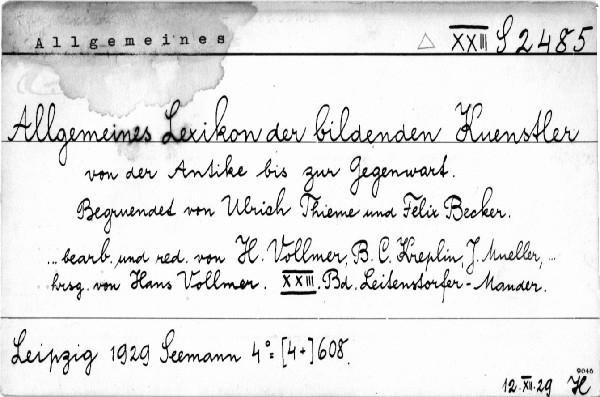 Allgemeines △ XXIII S 2485
Allgemeines Lexikon der bildenden Kuenstler
von der Antike bis zur Gegenwart.
Begruendet von Ulrich Thieme und Felix Becker.
... bearb. und red. von H. Vollmer, B. C. Kreplin, J. Mueller, ...
hrsg. von Hans Vollmer. XXIII. Bd. Leitenstorfer - Mander.
Leipzig 1929 Seemann 4° = [4+] 608.
9046
12.XII.29 H